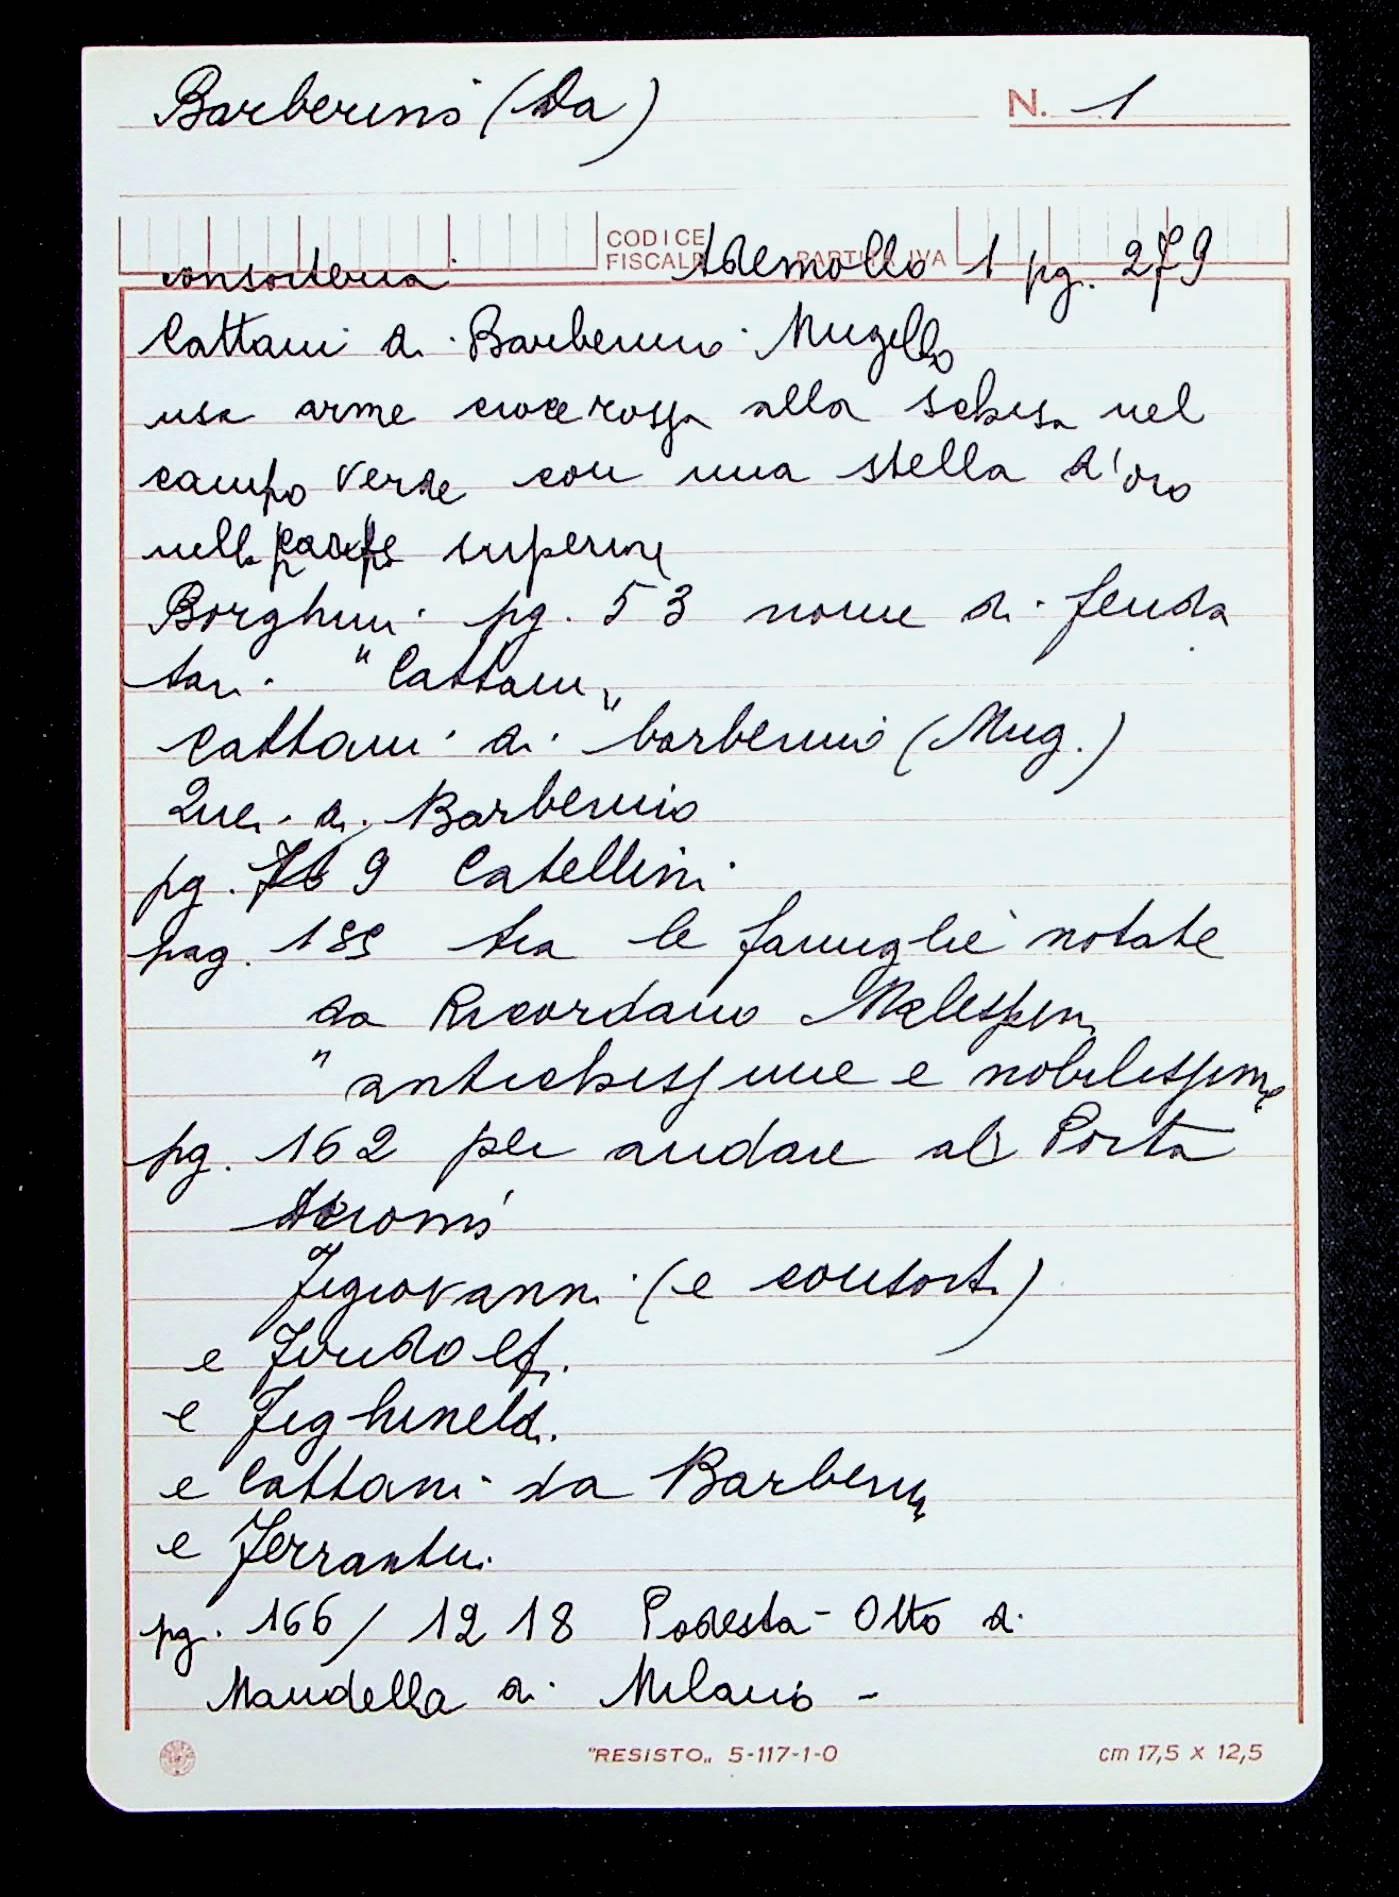 Barberino (Da)
N. 1
CODICE FISCALE
PARTITA IVA
consorteria Ademollo 1 pg. 279
Cattani di Barberino Mugello
usa arme croce rossa alla schisa nel
campo verde con una stella d'oro
nella parte superiore
Borghini pg. 53 nome di feuda
tari "Cattani"
Cattani di barberino (Mug.)
Quei di Barberino
9 Catellini
pag. 189 tra le famiglie notate
da Ricordano Malespini
"antichissime e nobilissime
pg. 162 per andare al Porta
Figiovanni (e consorti)
e Firidolfi
e Fighineldi
e Cattani da Barberino
e Ferrantini
pg. 166/1218 Podesta - Otto di
Mandella di Milano -
"RESISTO„ 5-117-1-0
cm 17,5 x 12,5